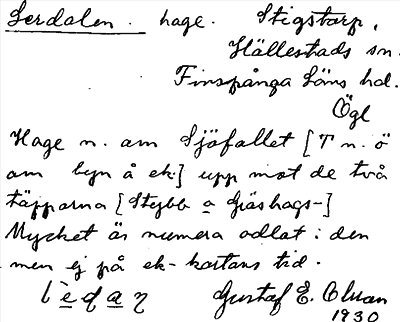 Lerdalen. hage. Stigstorp,
Hällestads sn.
Finspånga läns hd.
Ögl
Hage n. om Sjöfallet [T n. ö
om byn å ek.] upp mot de två
täpporna [Stybb o Gräshags-]
Mycket är numera odlat i den
men ej på ek-kartans tid.
Gustaf E. Olsson
1930